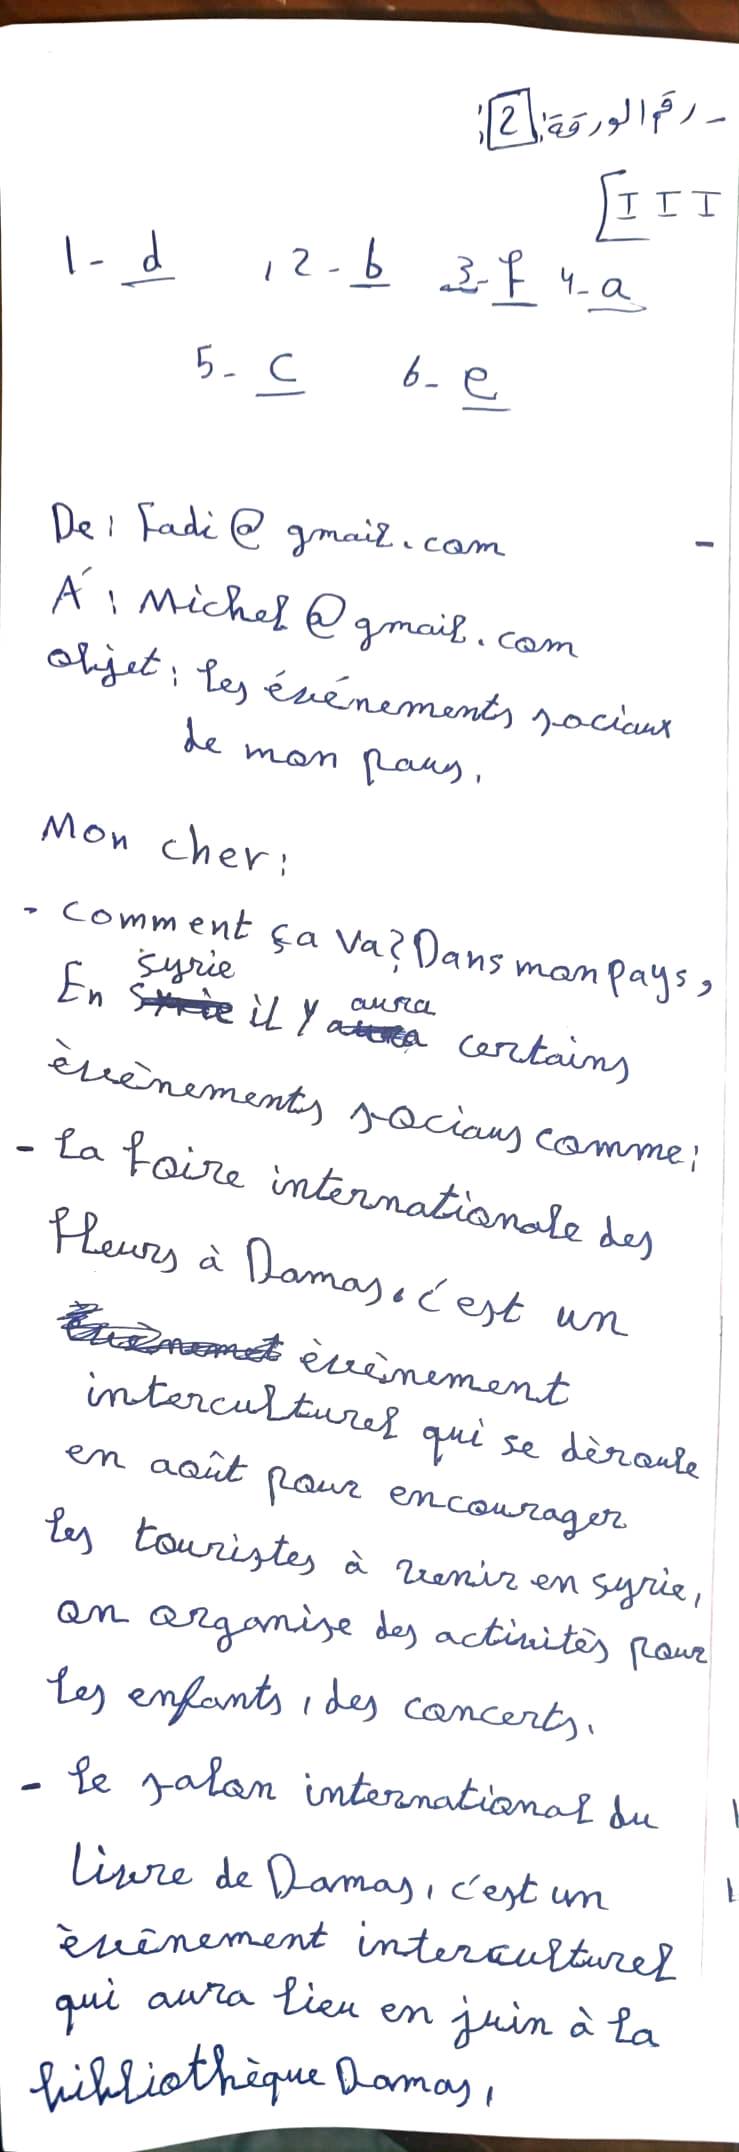 - رقم الورقة: 2
III
1- d , 2- b 3- f 4- a
5- c 6- e
De: Fadi@gmail.com -
À: Michel@gmail.com
objet: les événements sociaux
de mon pays.
Mon cher:
- Comment ça va? Dans mon pays,
En syrie il y aura certains
èvènements sociaux comme:
- La foire internationale des
fleurs à Damas. c'est un
èvènement
interculturel qui se dèroule
en août pour encourager
les touristes à venir en syrie,
on organise des activitès pour
les enfants, des concerts.
- le salon international du
livre de Damas, c'est un
èvènement interculturel
qui aura lieu en juin à la
bibliothèque Damas,